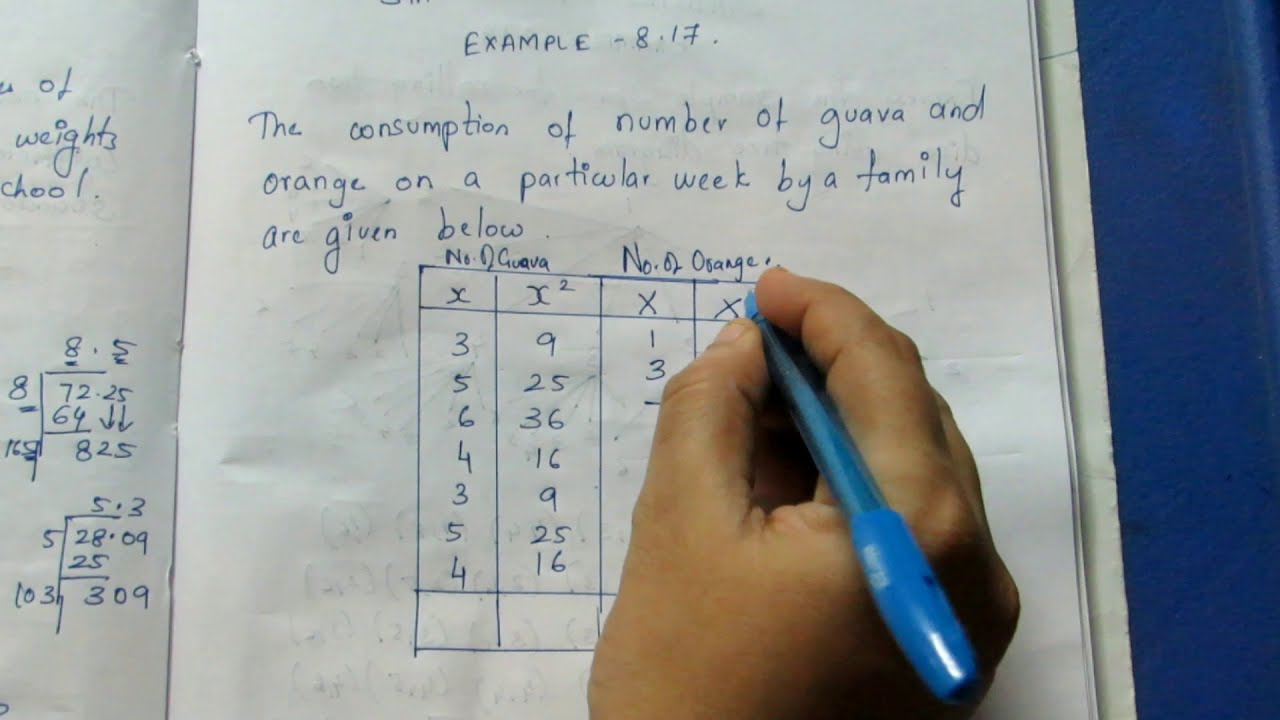 u of
weights
chool.
8.5
8 72.25
64
165 825
5.3
5 28.09
25
103 309
EXAMPLE - 8.17.
The consumption of number of guava and
orange on a particular week by a family
are given below.
No. of Guava No. of Orange.
x x² X X
3 9 1
5 25 3
6 36
4 16
3 9
5 25
4 16